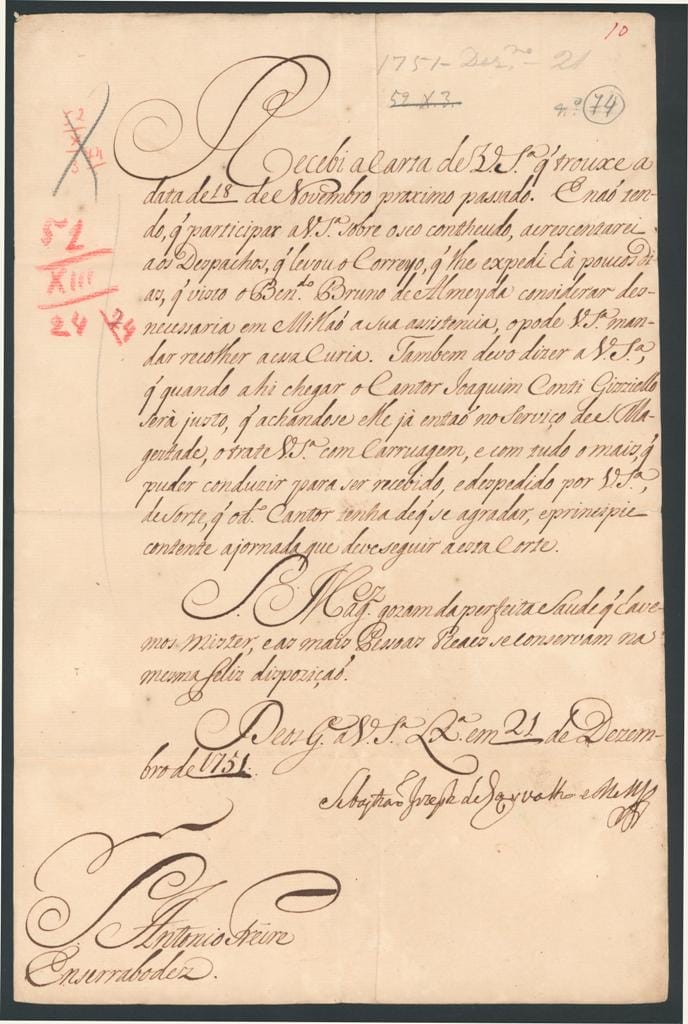 10
1751 - Dez.ro - 21
52 X 3
n.o 74
51
XIII
24 24
Recebi a Carta de V. S.a q̃ trouxe a
data de 18 de Novembro proximo passado. E naõ ten-
do, q̃ participar a V. S.a sobre o seo contheudo, acrescentarei
aos Despachos, q̃ levou o Correyo, q̃ lhe expedi hà poucos di-
as, q̃ visto o Ben.do Bruno de Almeyda considerar des-
necessaria em Millaõ a sua assistencia, o pode V. S.a man-
dar recolher a essa Curia. Tambem devo dizer a V. S.a,
q̃ quando ahi chegar o Cantor Joaquim Conti Gizziello
serà justo, q̃ achandose elle jà entaõ no Serviço de S. Ma-
gestade, o trate V. S.a com Carruagem, e com tudo o mais, q̃
puder conduzir para ser recebido, e despedido por V. S.a,
de sorte, q̃ o d.o Cantor tenha de q̃ se agradar, e principie
contente a jornada que deve seguir a esta Corte.
S. Mag.es gozam da perfeita Saude q̃ have-
mos mister, e as mais Pessoas Reaes se conservam na
mesma feliz dispoziçaõ.
Deos G.e a V. S.a Lx.a em 21 de Dezem-
bro de 1751.
Sebastiaõ Joseph de Carvalho e Mello
S. Antonio Freire
Enserrabodez.